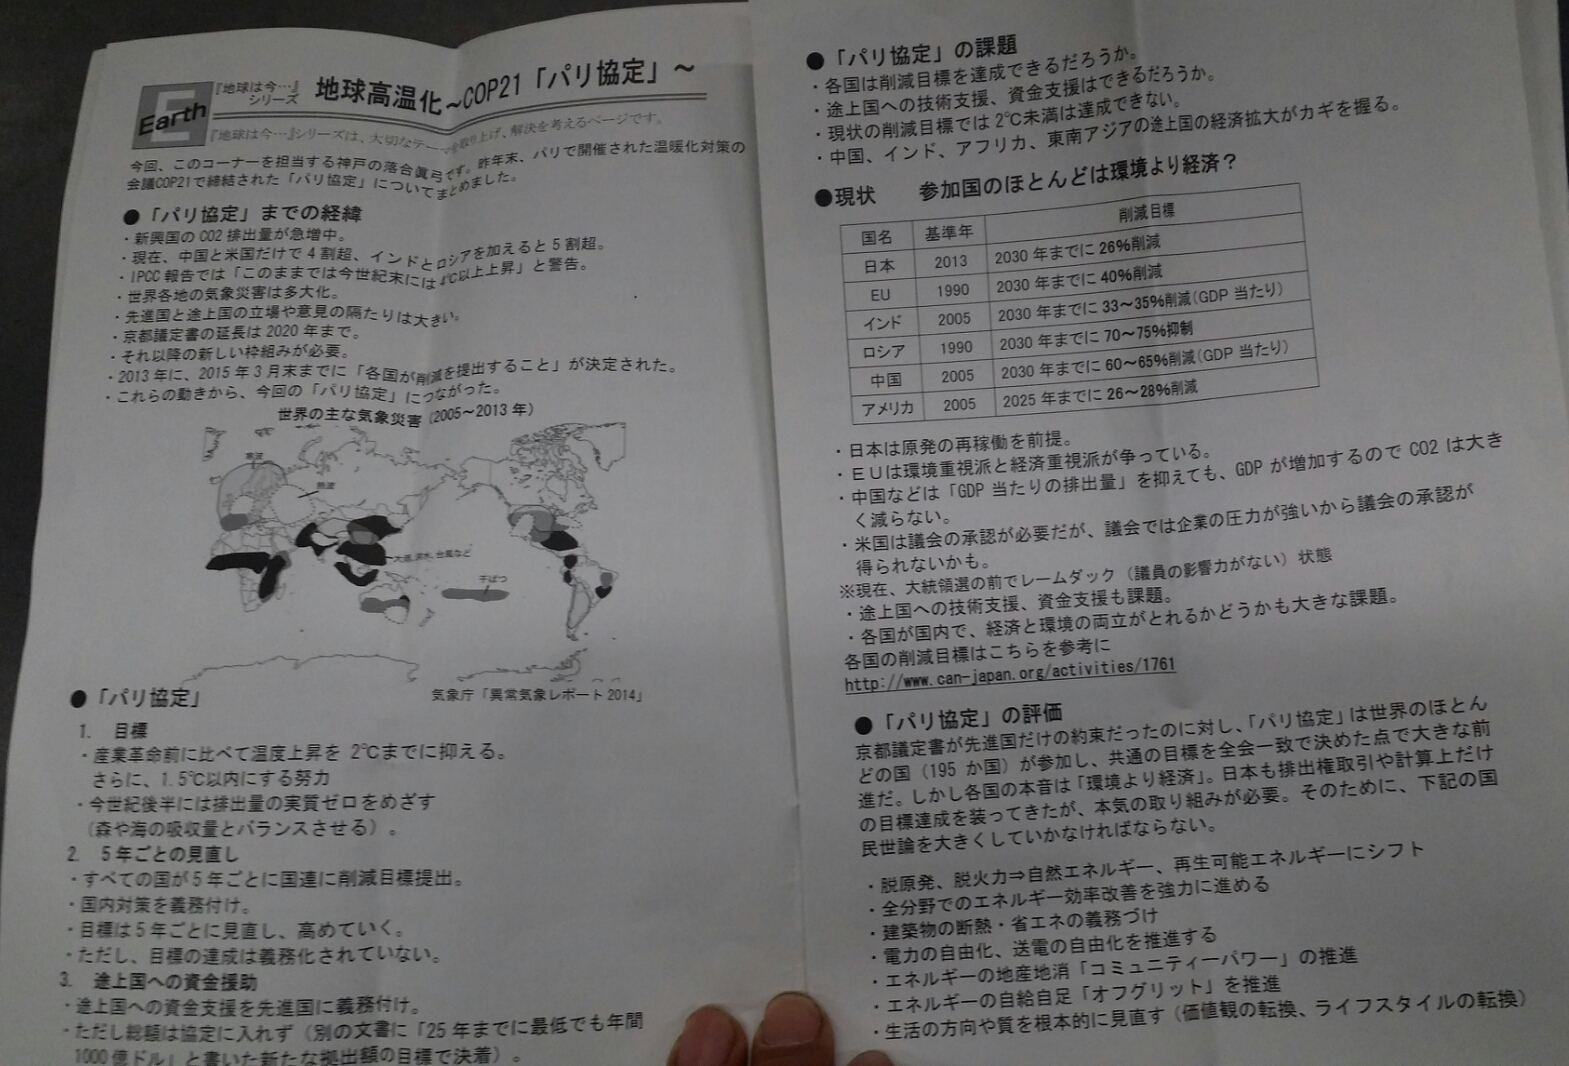 Earth
『地球は今…』
シリーズ
地球高温化～COP21「パリ協定」～
『地球は今…』シリーズは、大切なテーマを取り上げ、解決を考えるページです。
今回、このコーナーを担当する神戸の落合眞弓です。昨年末、パリで開催された温暖化対策の
会議COP21で締結された「パリ協定」についてまとめました。
●「パリ協定」までの経緯
・新興国の CO2 排出量が急増中。
・現在、中国と米国だけで 4 割超、インドとロシアを加えると 5 割超。
・IPCC 報告では「このままでは今世紀末には 4℃以上上昇」と警告。
・世界各地の気象災害は多大化。
・先進国と途上国の立場や意見の隔たりは大きい。
・京都議定書の延長は 2020 年まで。
・それ以降の新しい枠組みが必要。
・2013 年に、2015 年 3 月末までに「各国が削減を提出すること」が決定された。
・これらの動きから、今回の「パリ協定」につながった。
世界の主な気象災害 (2005～2013 年)
寒波
熱波
大雨、洪水、台風など
干ばつ
気象庁「異常気象レポート 2014」
●「パリ協定」
1. 目標
・産業革命前に比べて温度上昇を 2℃までに抑える。
さらに、1.5℃以内にする努力
・今世紀後半には排出量の実質ゼロをめざす
（森や海の吸収量とバランスさせる）。
2. 5 年ごとの見直し
・すべての国が 5 年ごとに国連に削減目標提出。
・国内対策を義務付け。
・目標は 5 年ごとに見直し、高めていく。
・ただし、目標の達成は義務化されていない。
3. 途上国への資金援助
・途上国への資金支援を先進国に義務付け。
・ただし総額は協定に入れず（別の文書に「25 年までに最低でも年間
1000 億ドル」と書いた新たな拠出額の目標で決着）。
●「パリ協定」の課題
・各国は削減目標を達成できるだろうか。
・途上国への技術支援、資金支援はできるだろうか。
・現状の削減目標では 2℃未満は達成できない。
・中国、インド、アフリカ、東南アジアの途上国の経済拡大がカギを握る。
●現状　参加国のほとんどは環境より経済？
国名 基準年 削減目標
日本 2013 2030 年までに 26%削減
EU 1990 2030 年までに 40%削減
インド 2005 2030 年までに 33～35%削減(GDP 当たり)
ロシア 1990 2030 年までに 70～75%抑制
中国 2005 2030 年までに 60～65%削減(GDP 当たり)
アメリカ 2005 2025 年までに 26～28%削減
・日本は原発の再稼働を前提。
・ＥＵは環境重視派と経済重視派が争っている。
・中国などは「GDP 当たりの排出量」を抑えても、GDP が増加するので CO2 は大き
く減らない。
・米国は議会の承認が必要だが、議会では企業の圧力が強いから議会の承認が
得られないかも。
※現在、大統領選の前でレームダック（議員の影響力がない）状態
・途上国への技術支援、資金支援も課題。
・各国が国内で、経済と環境の両立がとれるかどうかも大きな課題。
各国の削減目標はこちらを参考に
http://www.can-japan.org/activities/1761
●「パリ協定」の評価
京都議定書が先進国だけの約束だったのに対し、「パリ協定」は世界のほとん
どの国（195 か国）が参加し、共通の目標を全会一致で決めた点で大きな前
進だ。しかし各国の本音は「環境より経済」。日本も排出権取引や計算上だけ
の目標達成を装ってきたが、本気の取り組みが必要。そのために、下記の国
民世論を大きくしていかなければならない。
・脱原発、脱火力⇒自然エネルギー、再生可能エネルギーにシフト
・全分野でのエネルギー効率改善を強力に進める
・建築物の断熱・省エネの義務づけ
・電力の自由化、送電の自由化を推進する
・エネルギーの地産地消「コミュニティーパワー」の推進
・エネルギーの自給自足「オフグリット」を推進
・生活の方向や質を根本的に見直す（価値観の転換、ライフスタイルの転換）